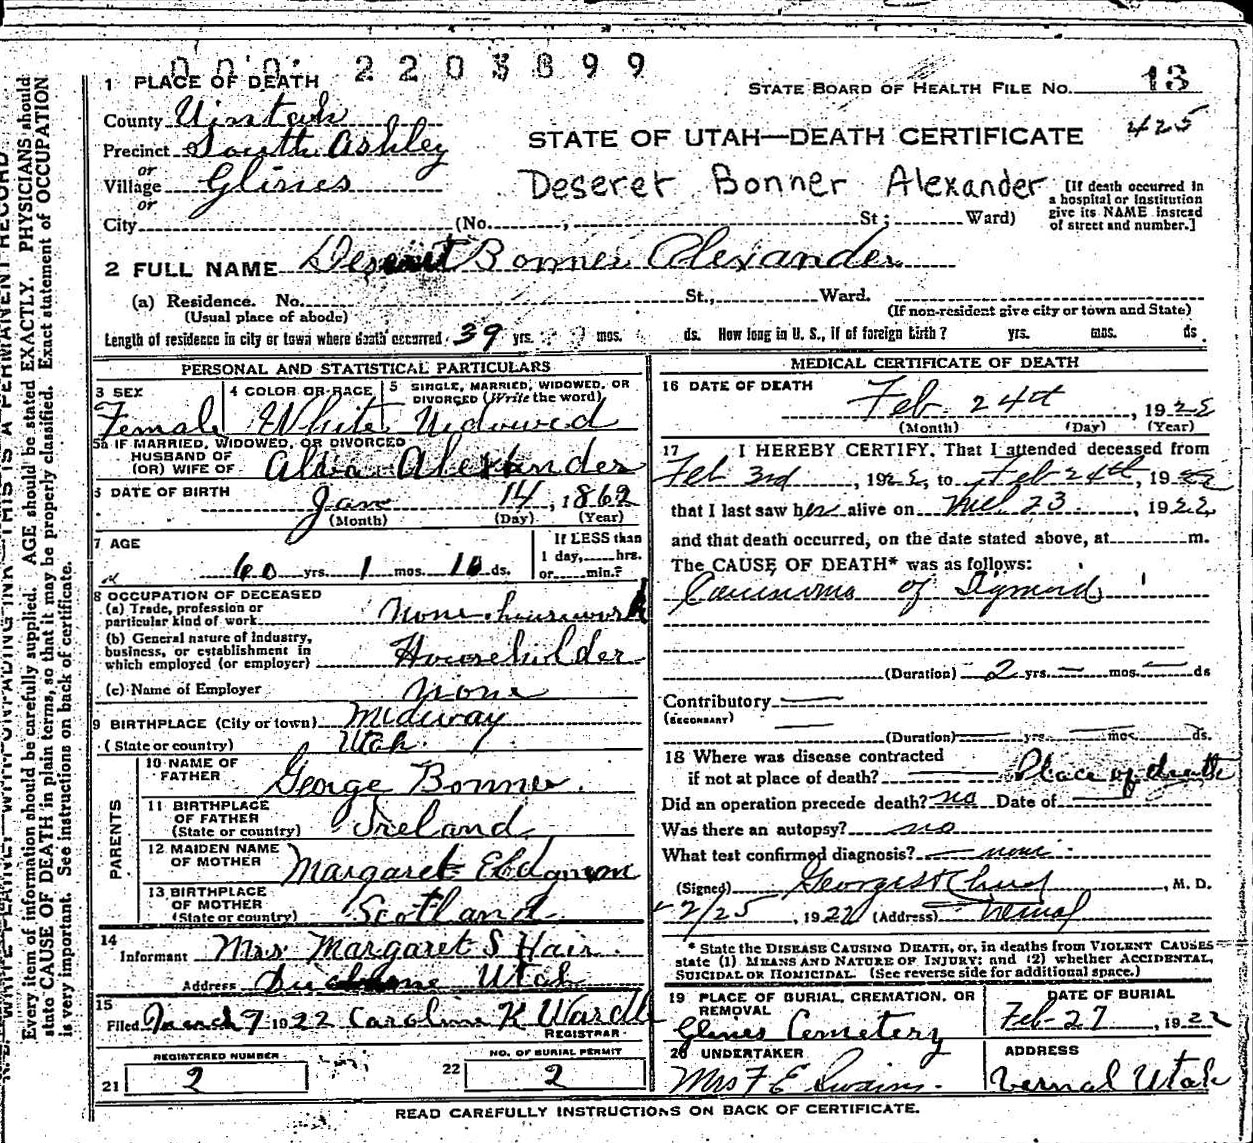 000. 2203899
1 PLACE OF DEATH
STATE BOARD OF HEALTH FILE No. 13
County Uintah
425
Precinct South Ashley
STATE OF UTAH—DEATH CERTIFICATE
or
Village Glines
Deseret Bonner Alexander
[If death occurred in a hospital or institution give its NAME instead of street and number.]
or
City (No. , St; Ward)
2 FULL NAME Deseret Bonner Alexander
(a) Residence. No. St., Ward.
(Usual place of abode) (If non-resident give city or town and State)
Length of residence in city or town where death occurred 39 yrs. mos. ds. How long in U. S., if of foreign birth? yrs. mos. ds.
PERSONAL AND STATISTICAL PARTICULARS
3 SEX Female
4 COLOR OR RACE White
5 SINGLE, MARRIED, WIDOWED, OR DIVORCED (Write the word) Widowed
5a IF MARRIED, WIDOWED, OR DIVORCED
HUSBAND OF
(OR) WIFE OF Alexander
6 DATE OF BIRTH Jan 14, 1862
(Month) (Day) (Year)
7 AGE
60 yrs. 1 mos. 10 ds.
If LESS than
1 day, hrs.
or min.?
8 OCCUPATION OF DECEASED
(a) Trade, profession or
particular kind of work None housework
(b) General nature of industry,
business, or establishment in
which employed (or employer) Householder
(c) Name of Employer None
9 BIRTHPLACE (City or town) Midway
(State or country) Utah
PARENTS
10 NAME OF
FATHER George Bonner
11 BIRTHPLACE
OF FATHER
(State or country) Ireland
12 MAIDEN NAME
OF MOTHER Margaret
13 BIRTHPLACE
OF MOTHER
(State or country) Scotland
14
Informant Mrs Margaret S Hair
Address Duchesne Utah
15
Filed March 9 1922 Caroline K Wardle
REGISTRAR
REGISTERED NUMBER
21 2
NO. OF BURIAL PERMIT
22 2
MEDICAL CERTIFICATE OF DEATH
16 DATE OF DEATH
Feb. 24th, 1922
(Month) (Day) (Year)
17 I HEREBY CERTIFY, That I attended deceased from
Feb 3rd, 1922, to Feb 24th, 1922
that I last saw her alive on 23, 1922,
and that death occurred, on the date stated above, at m.
The CAUSE OF DEATH* was as follows:
of Sigmoid
(Duration) 2 yrs. — mos. — ds
Contributory —
(SECONDARY)
(Duration) yrs. mos. ds.
18 Where was disease contracted
if not at place of death? Place of death
Did an operation precede death? no Date of
Was there an autopsy? no
What test confirmed diagnosis? none
(Signed) , M. D.
2/25, 1922 (Address) Vernal
* State the DISEASE CAUSING DEATH, or, in deaths from VIOLENT CAUSES
state (1) MEANS AND NATURE OF INJURY; and (2) whether ACCIDENTAL,
SUICIDAL OR HOMICIDAL. (See reverse side for additional space.)
19 PLACE OF BURIAL, CREMATION, OR
REMOVAL
Glines Cemetery
DATE OF BURIAL
Feb-27, 1922
20 UNDERTAKER
Mrs F E Swain.
ADDRESS
Vernal Utah
READ CAREFULLY INSTRUCTIONS ON BACK OF CERTIFICATE.
Every item of information should be carefully supplied. AGE should be stated EXACTLY. PHYSICIANS should
state CAUSE OF DEATH in plain terms, so that it may be properly classified. Exact statement of OCCUPATION
is very important. See instructions on back of certificate.